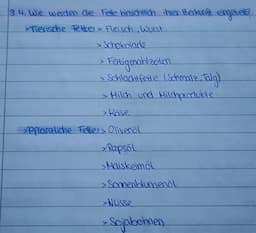 3.4. Wie werden die Fette hinsichtlich ihrer Herkunft eingeteilt?
> Tierische Fette: > Fleisch, Wurst
> Schokolade
> Fertigmahlzeiten
> Schlachtfette (Schmalz, Talg)
> Milch und Milchprodukte
> Käse
> Pflanzliche Fette: > Olivenöl
> Rapsöl
> Maiskeimöl
> Sonnenblumenöl
> Nüsse
> Sojabohnen